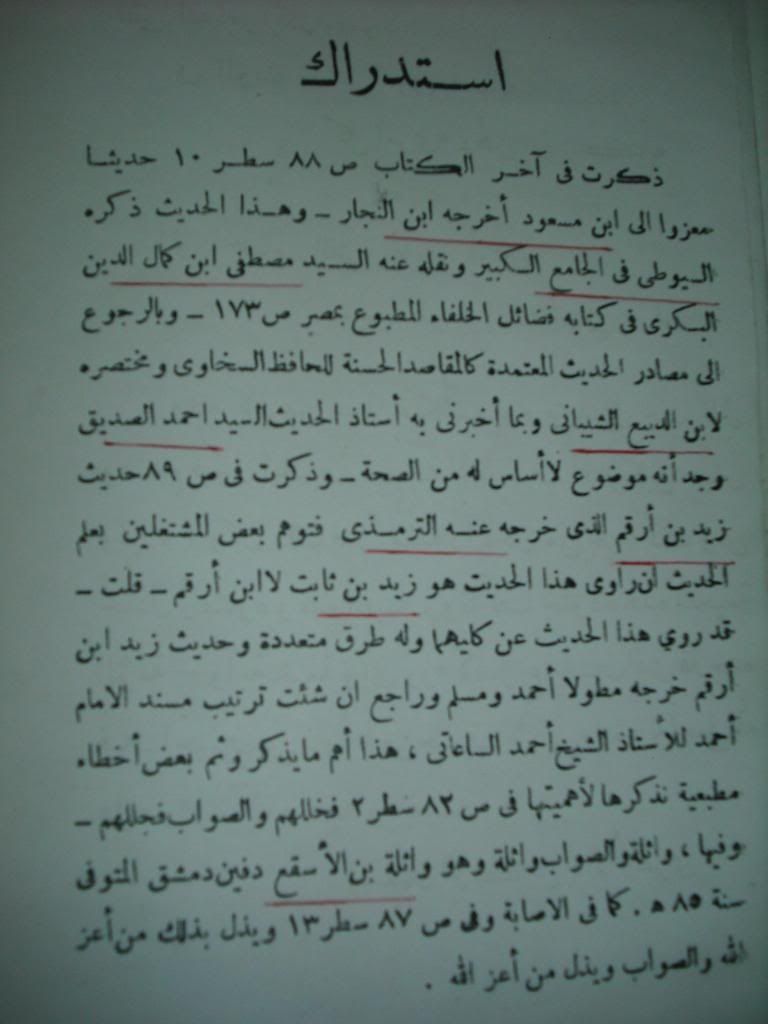 استدراك
ذكرت فى آخر الكتاب ص ٨٨ سطر ١٠ حديثا
معزوا الى ابن مسعود أخرجه ابن النجار ـ وهذا الحديث ذكره
السيوطى فى الجامع الكبير ونقله عنه السيد مصطفى ابن كمال الدين
البكرى فى كتابه فضائل الخلفاء المطبوع بمصر ص ١٧٣ ـ وبالرجوع
الى مصادر الحديث المعتمدة كالمقاصد الحسنة للحافظ السخاوى ومختصره
لابن الديبع الشيبانى وبما أخبرنى به أستاذ الحديث السيد احمد الصديق
وجد أنه موضوع لا أساس له من الصحة ـ وذكرت فى ص ٨٩ حديث
زيد بن أرقم الذى خرجه عنه الترمذى فتوهم بعض المشتغلين بعلم
الحديث ان راوى هذا الحديت هو زيد بن ثابت لا ابن أرقم ـ قلت ـ
قد روي هذا الحديث عن كليهما وله طرق متعددة وحديث زيد ابن
أرقم خرجه مطولا أحمد ومسلم وراجع ان شئت ترتيب مسند الامام
أحمد للأستاذ الشيخ أحمد الساعاتى ، هذا أهم ما يذكر وثم بعض أخطاء
مطبعية نذكرها لأهميتها فى ص ٨٢ سطر ٢ فخللهم والصواب فجللهم ـ
وفيها ، واثلة والصواب واثلة وهو واثلة بن الأسقع دفين دمشق المتوفى
سنة ٨٥ ه . كما فى الاصابة وفى ص ٨٧ سطر ١٣ ويذل بذلك من أعز
الله والصواب ويذل من أعز الله .